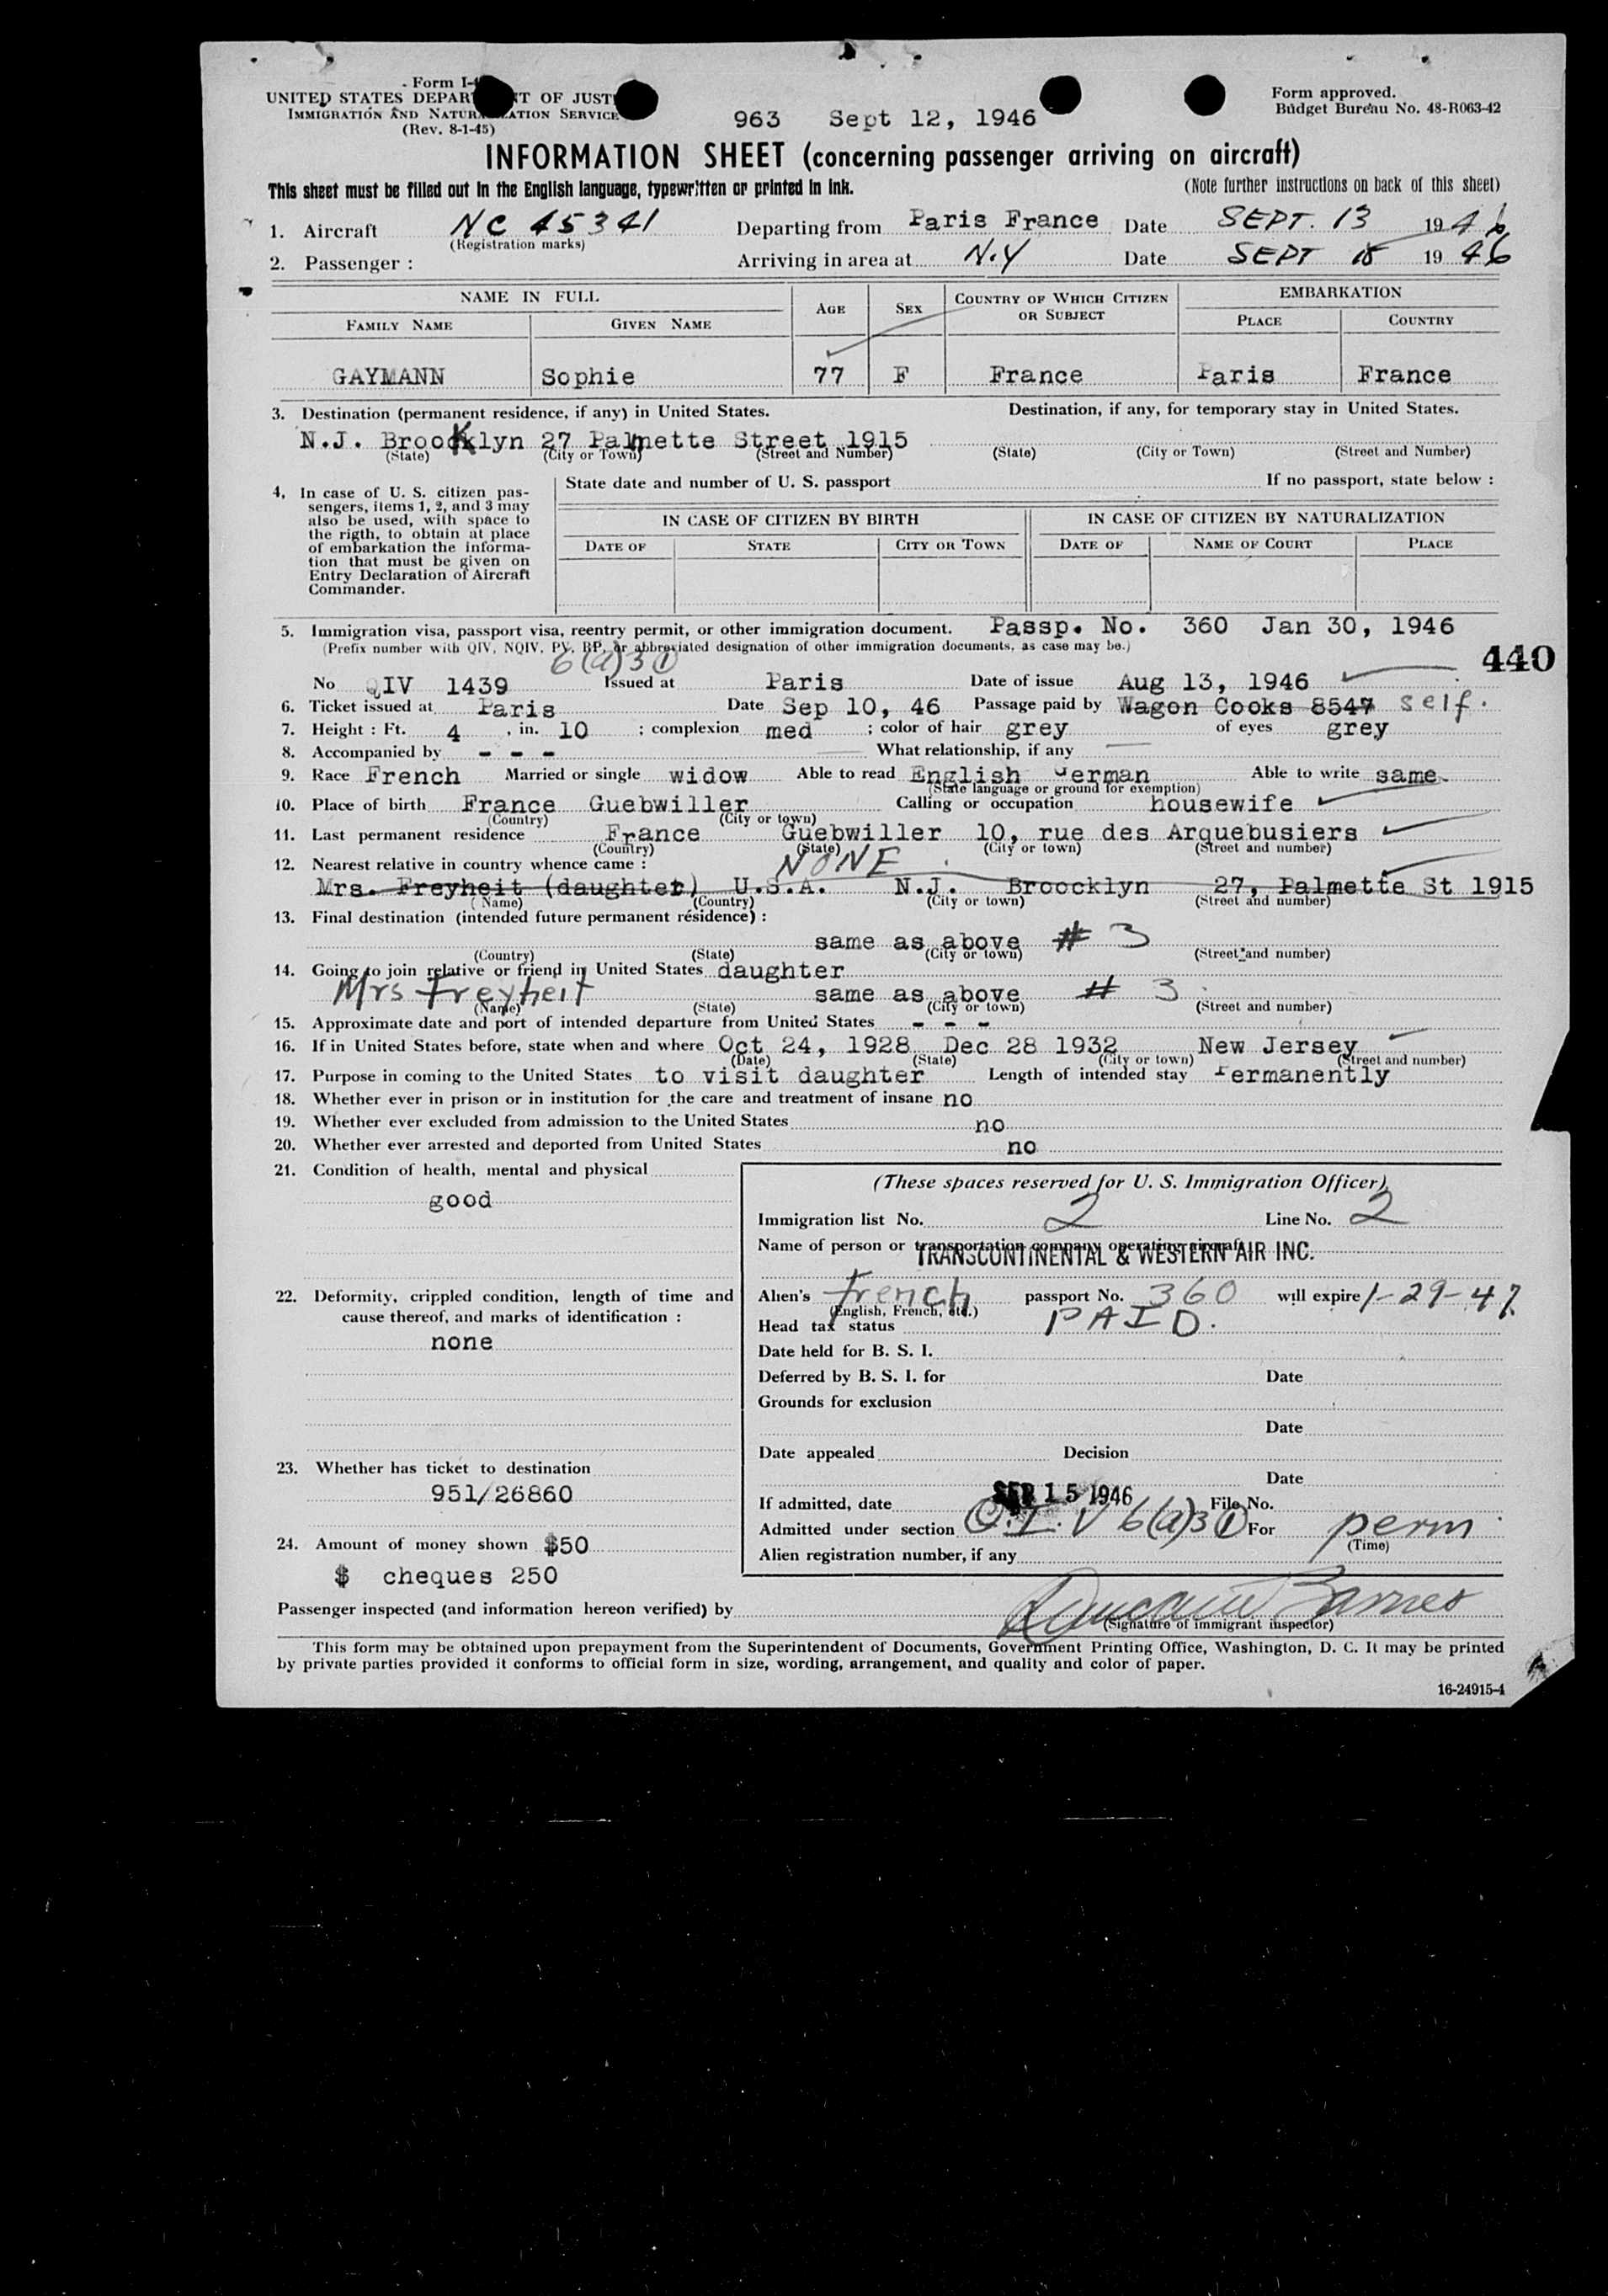 Form I-4
UNITED STATES DEPARTMENT OF JUSTICE
IMMIGRATION AND NATURALIZATION SERVICE
(Rev. 8-1-45)
Form approved.
Budget Bureau No. 48-R063-42
963 Sept 12, 1946
INFORMATION SHEET (concerning passenger arriving on aircraft)
This sheet must be filled out in the English language, typewritten or printed in ink. (Note further instructions on back of this sheet)
1. Aircraft NC 45341 Departing from Paris France Date SEPT. 13 1946
(Registration marks)
2. Passenger : Arriving in area at N.Y Date SEPT 15 1946
NAME IN FULL AGE SEX COUNTRY OF WHICH CITIZEN OR SUBJECT EMBARKATION
FAMILY NAME GIVEN NAME PLACE COUNTRY
GAYMANN Sophie 77 F France Paris France
3. Destination (permanent residence, if any) in United States. Destination, if any, for temporary stay in United States.
N.J. Broocklyn 27 Palmette Street 1915
(State) (City or Town) (Street and Number) (State) (City or Town) (Street and Number)
4. In case of U. S. citizen passengers, items 1, 2, and 3 may also be used, with space to the rigth, to obtain at place of embarkation the information that must be given on Entry Declaration of Aircraft Commander.
State date and number of U. S. passport If no passport, state below :
IN CASE OF CITIZEN BY BIRTH IN CASE OF CITIZEN BY NATURALIZATION
DATE OF STATE CITY OR TOWN DATE OF NAME OF COURT PLACE
5. Immigration visa, passport visa, reentry permit, or other immigration document. Passp. No. 360 Jan 30, 1946
(Prefix number with QIV, NQIV, PV, RP, or abbreviated designation of other immigration documents, as case may be.)
6(a)3(1)
440
No QIV 1439 Issued at Paris Date of issue Aug 13, 1946
6. Ticket issued at Paris Date Sep 10, 46 Passage paid by Wagon Cooks 8547 self.
7. Height : Ft. 4 , in. 10 ; complexion med ; color of hair grey of eyes grey
8. Accompanied by - - - What relationship, if any
9. Race French Married or single widow Able to read English German Able to write same
(State language or ground for exemption)
10. Place of birth France Guebwiller Calling or occupation housewife
(Country) (City or town)
11. Last permanent residence France Guebwiller 10, rue des Arquebusiers
(Country) (State) (City or town) (Street and number)
12. Nearest relative in country whence came : NONE
Mrs. Freyheit (daughter) U.S.A. N.J. Broocklyn 27, Palmette St 1915
(Name) (Country) (City or town) (Street and number)
13. Final destination (intended future permanent résidence) :
same as above # 3
(Country) (State) (City or town) (Street and number)
14. Going to join relative or friend in United States daughter
Mrs Freyheit same as above # 3
(Name) (State) (City or town) (Street and number)
15. Approximate date and port of intended departure from United States - - -
16. If in United States before, state when and where Oct 24, 1928 Dec 28 1932 New Jersey
(Date) (State) (City or town) (Street and number)
17. Purpose in coming to the United States to visit daughter Length of intended stay Permanently
18. Whether ever in prison or in institution for the care and treatment of insane no
19. Whether ever excluded from admission to the United States no
20. Whether ever arrested and deported from United States no
21. Condition of health, mental and physical
good
22. Deformity, crippled condition, length of time and cause thereof, and marks of identification :
none
23. Whether has ticket to destination
951/26860
24. Amount of money shown $50
$ cheques 250
(These spaces reserved for U. S. Immigration Officer)
Immigration list No. 2 Line No. 2
Name of person or transportation company operating aircraft
TRANSCONTINENTAL & WESTERN AIR INC.
Alien's French passport No. 360 will expire 1-29-47
(English, French, etc.)
Head tax status PAID.
Date held for B. S. I.
Deferred by B. S. I. for Date
Grounds for exclusion
Date
Date appealed Decision
Date
If admitted, date SEP 15 1946 File No.
Admitted under section Q.I.V 6(a)3(1) For perm
(Time)
Alien registration number, if any
Passenger inspected (and information hereon verified) by Duncan Barnes
(Signature of immigrant inspector)
This form may be obtained upon prepayment from the Superintendent of Documents, Government Printing Office, Washington, D. C. It may be printed
by private parties provided it conforms to official form in size, wording, arrangement, and quality and color of paper.
16-24915-4